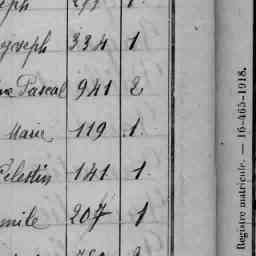 Joseph 334 1
Pascal 941 2
Marie 119 1
Célestin 141 1
Emile 207 1
Registre matricule. — 16-465-1918.